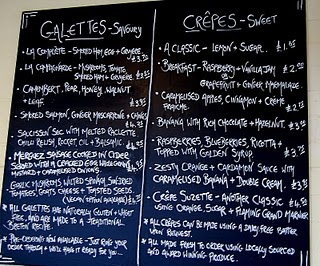 GALETTES - SAVOURY
• LA COMPLÈTE - SMOKED HAM, EGG + GRUYERE.
• LA CAMPAGNARDE - MUSHROOMS, TOMATO,
SMOKED HAM + GRUYERE.
• CAMEMBERT, PEAR, HONEY, WALNUT
+ LEAF.
• SMOKED SALMON, GINGER MASCARPONE + CHIVES
• SAUCISSON SEC WITH MELTED RACLETTE
CHILLI RELISH, ROCKET, OIL + BALSAMIC.
• MERGUEZ SAUSAGE COOKED IN CIDER
SERVED WITH A CRACKED EGG, WHOLEGRAIN
MUSTARD + CARAMELISED ONIONS
• GARLIC MUSHROOMS, WILTED SPINACH, SUNDRIED
TOMATOES, GOATS CHEESE + TOASTED SEEDS.
(VEGAN OPTION AVAILABLE)
* ALL GALETTES ARE NATURALLY GLUTEN + WHEAT
FREE, AND ARE MADE TO A TRADITIONAL
BRETON RECIPE.
* PRE-ORDERING NOW AVAILABLE - JUST RING YOUR
ORDER THROUGH + WE'LL HAVE IT READY FOR YOU...
CRÊPES - SWEET
• A CLASSIC - LEMON + SUGAR. £1.95
• BREAKFAST - RASPBERRY + VANILLA JAM £2.00
GRAPEFRUIT + GINGER MARMALADE.
• CARAMELISED APPLES, CINNAMON + CRÈME
FRAICHE.
• BANANA WITH RICH CHOCOLATE + HAZELNUT.
• RASPBERRIES, BLUEBERRIES, RICOTTA +
TOPPED WITH GOLDEN SYRUP
• ZESTY ORANGE + CARDAMON SAUCE WITH
CARAMELISED BANANA + DOUBLE CREAM.
• CRÊPE SUZETTE - ANOTHER CLASSIC
USING ORANGE, SUGAR + FLAMING GRAND MARNIER
* ALL CRÊPES CAN BE MADE USING A DAIRY FREE BATTER
UPON REQUEST.
* ALL MADE FRESH TO ORDER USING LOCALLY SOURCED
AND AWARD WINNING PRODUCE.